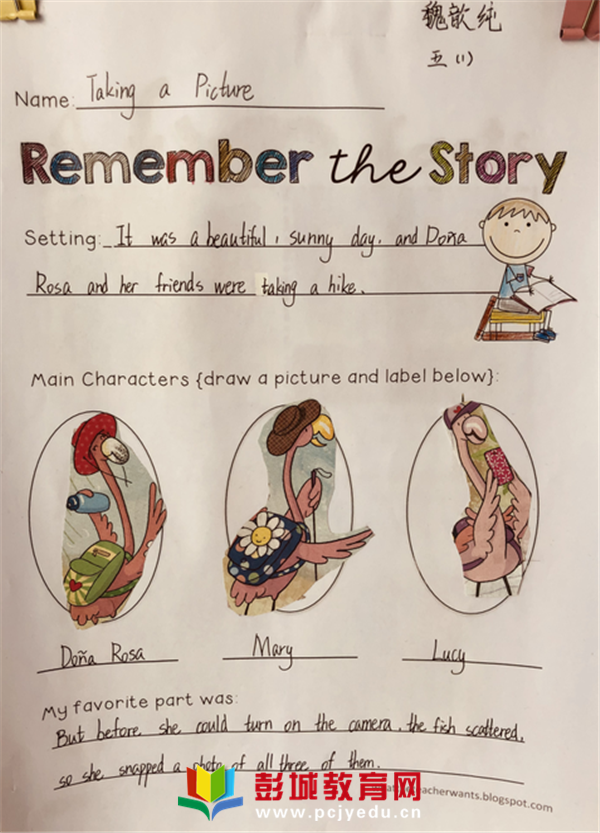 魏歆纯
五(1)
Name: Taking a Picture
Remember the Story
Setting: It was a beautiful, sunny day, and Doña
Rosa and her friends were taking a hike.
Main Characters {draw a picture and label below}:
Doña Rosa
Mary
Lucy
My favorite part was:
But before she could turn on the camera, the fish scattered,
so she snapped a photo of all three of them.
eacherwants.blogspot.com
彭城教育网
www.pcjyedu.cn